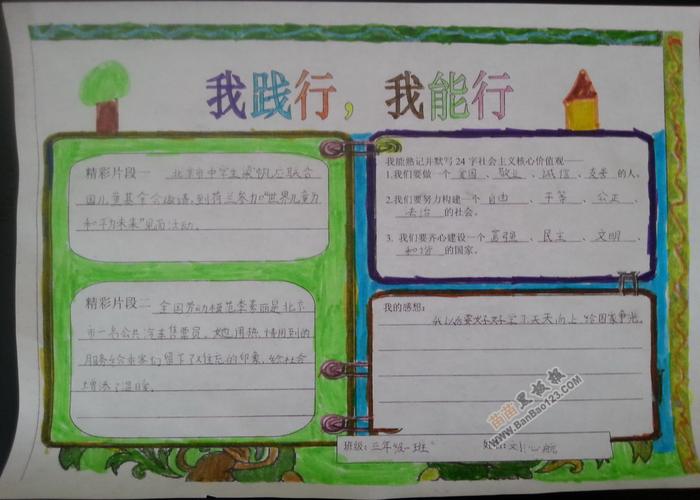 我践行，我能行
精彩片段一 北京市中学生梁帆应联合
国儿童基金会邀请，到荷兰参加“世界儿童为
和平为未来”见面活动。
精彩片段二 全国劳动模范李素丽是北京
市一名公共汽车售票员。她用热情周到的
服务给乘客们留下了难忘的印象，给社会
增添了温暖。
我能熟记并默写24字社会主义核心价值观——
1.我们要做一个 爱国 、 敬业 、 诚信 、 友善 的人。
2.我们要努力构建一个 自由 、 平等 、 公正 、
法治 的社会。
3. 我们要齐心建设一个 富强 、 民主 、 文明 、
和谐 的国家。
我的感想：
我以后要好好学习天天向上，给国家争光。
班级：三年级一班
姓名：刘心航
苗苗黑板报
www.BanBao123.com